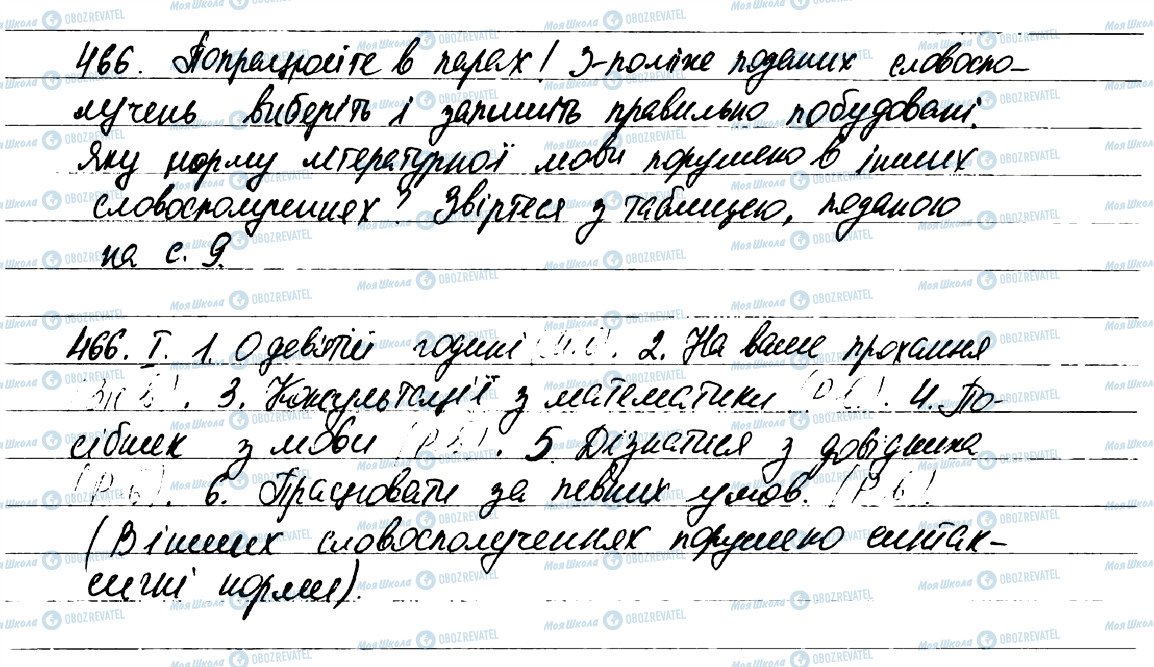 466. Попрацюйте в парах! З-поміж поданих словоспо-
лучень виберіть і запишіть правильно побудовані.
Яку норму літературної мови порушено в інших
словосполученнях? Звіртеся з таблицею, поданою
на с. 9.
466. I. 1. О дев'ятій годині (М.в). 2. На ваше прохання
(Зн.в). 3. Консультації з математики (Р.в). 4. По-
сібник з мови (Р.в). 5. Дізнатися з довідника
(Р.в). 6. Працювати за певних умов. (Р.в).
(В інших словосполученнях порушено синтак-
сичні норми).